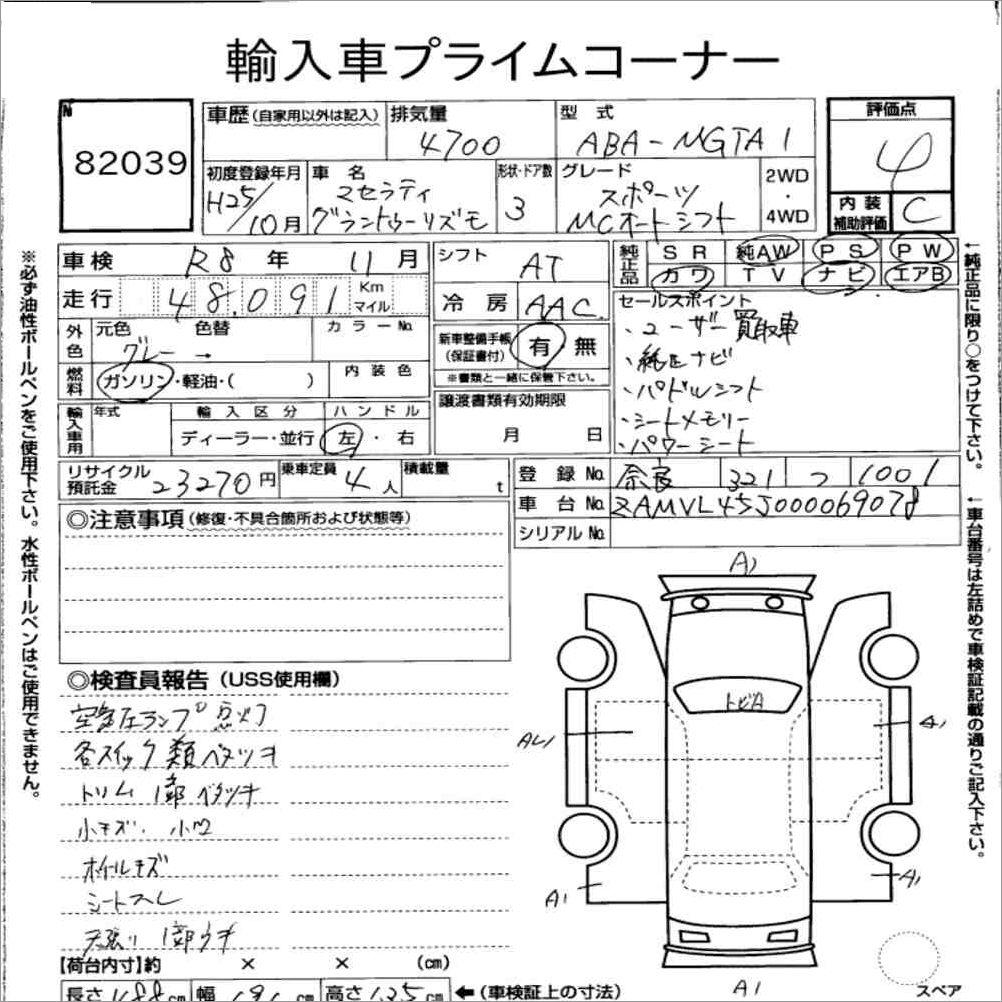 輸入車プライムコーナー
N
82039
車歴(自家用以外は記入)
排気量
4700
型式
ABA-MGTA1
評価点
4
内装
補助評価
C
初度登録年月
H25/10月
車名
マセラティ
グラントゥーリズモ
形状・ドア数
3
グレード
スポーツ
MCオートシフト
2WD
・
4WD
車検 R8年 11月
走行 48,091 Km マイル
外色 元色 色替 カラーNo.
グレー →
燃料 ガソリン・軽油・( ) 内装色
輸入車用 年式 輸入区分 ハンドル
ディーラー・並行 左・右
シフト AT
冷房 AAC
新車整備手帳
(保証書付)
有 無
※書類と一緒に保管下さい。
譲渡書類有効期限
月 日
純正品 SR 純AW PS PW
カワ TV ナビ エアB
セールスポイント
・ユーザー買取車
・純正ナビ
・パドルシフト
・シートメモリー
・パワーシート
リサイクル
預託金
23270円
乗車定員 4人
積載量 t
登録No. 奈良 321 つ 1001
車台No. ZAMVL45J000069078
シリアルNo.
◎注意事項(修復・不具合箇所および状態等)
◎検査員報告(USS使用欄)
空気圧ランプ点灯
各スイッチ類ベタツキ
トリム1部ベタツキ
小キズ、小凹
ホイールキズ
シートスレ
天張り1部ウキ
【荷台内寸】約 × × (cm)
長さ 488cm 幅 191cm 高さ 135cm ←(車検証上の寸法)
A1
トビA
A1
A1
A1
A1
スペア
※必ず油性ボールペンをご使用下さい。水性ボールペンはご使用できません。
←純正品に限り○をつけて下さい。
←車台番号は左詰めで車検証記載の通りご記入下さい。